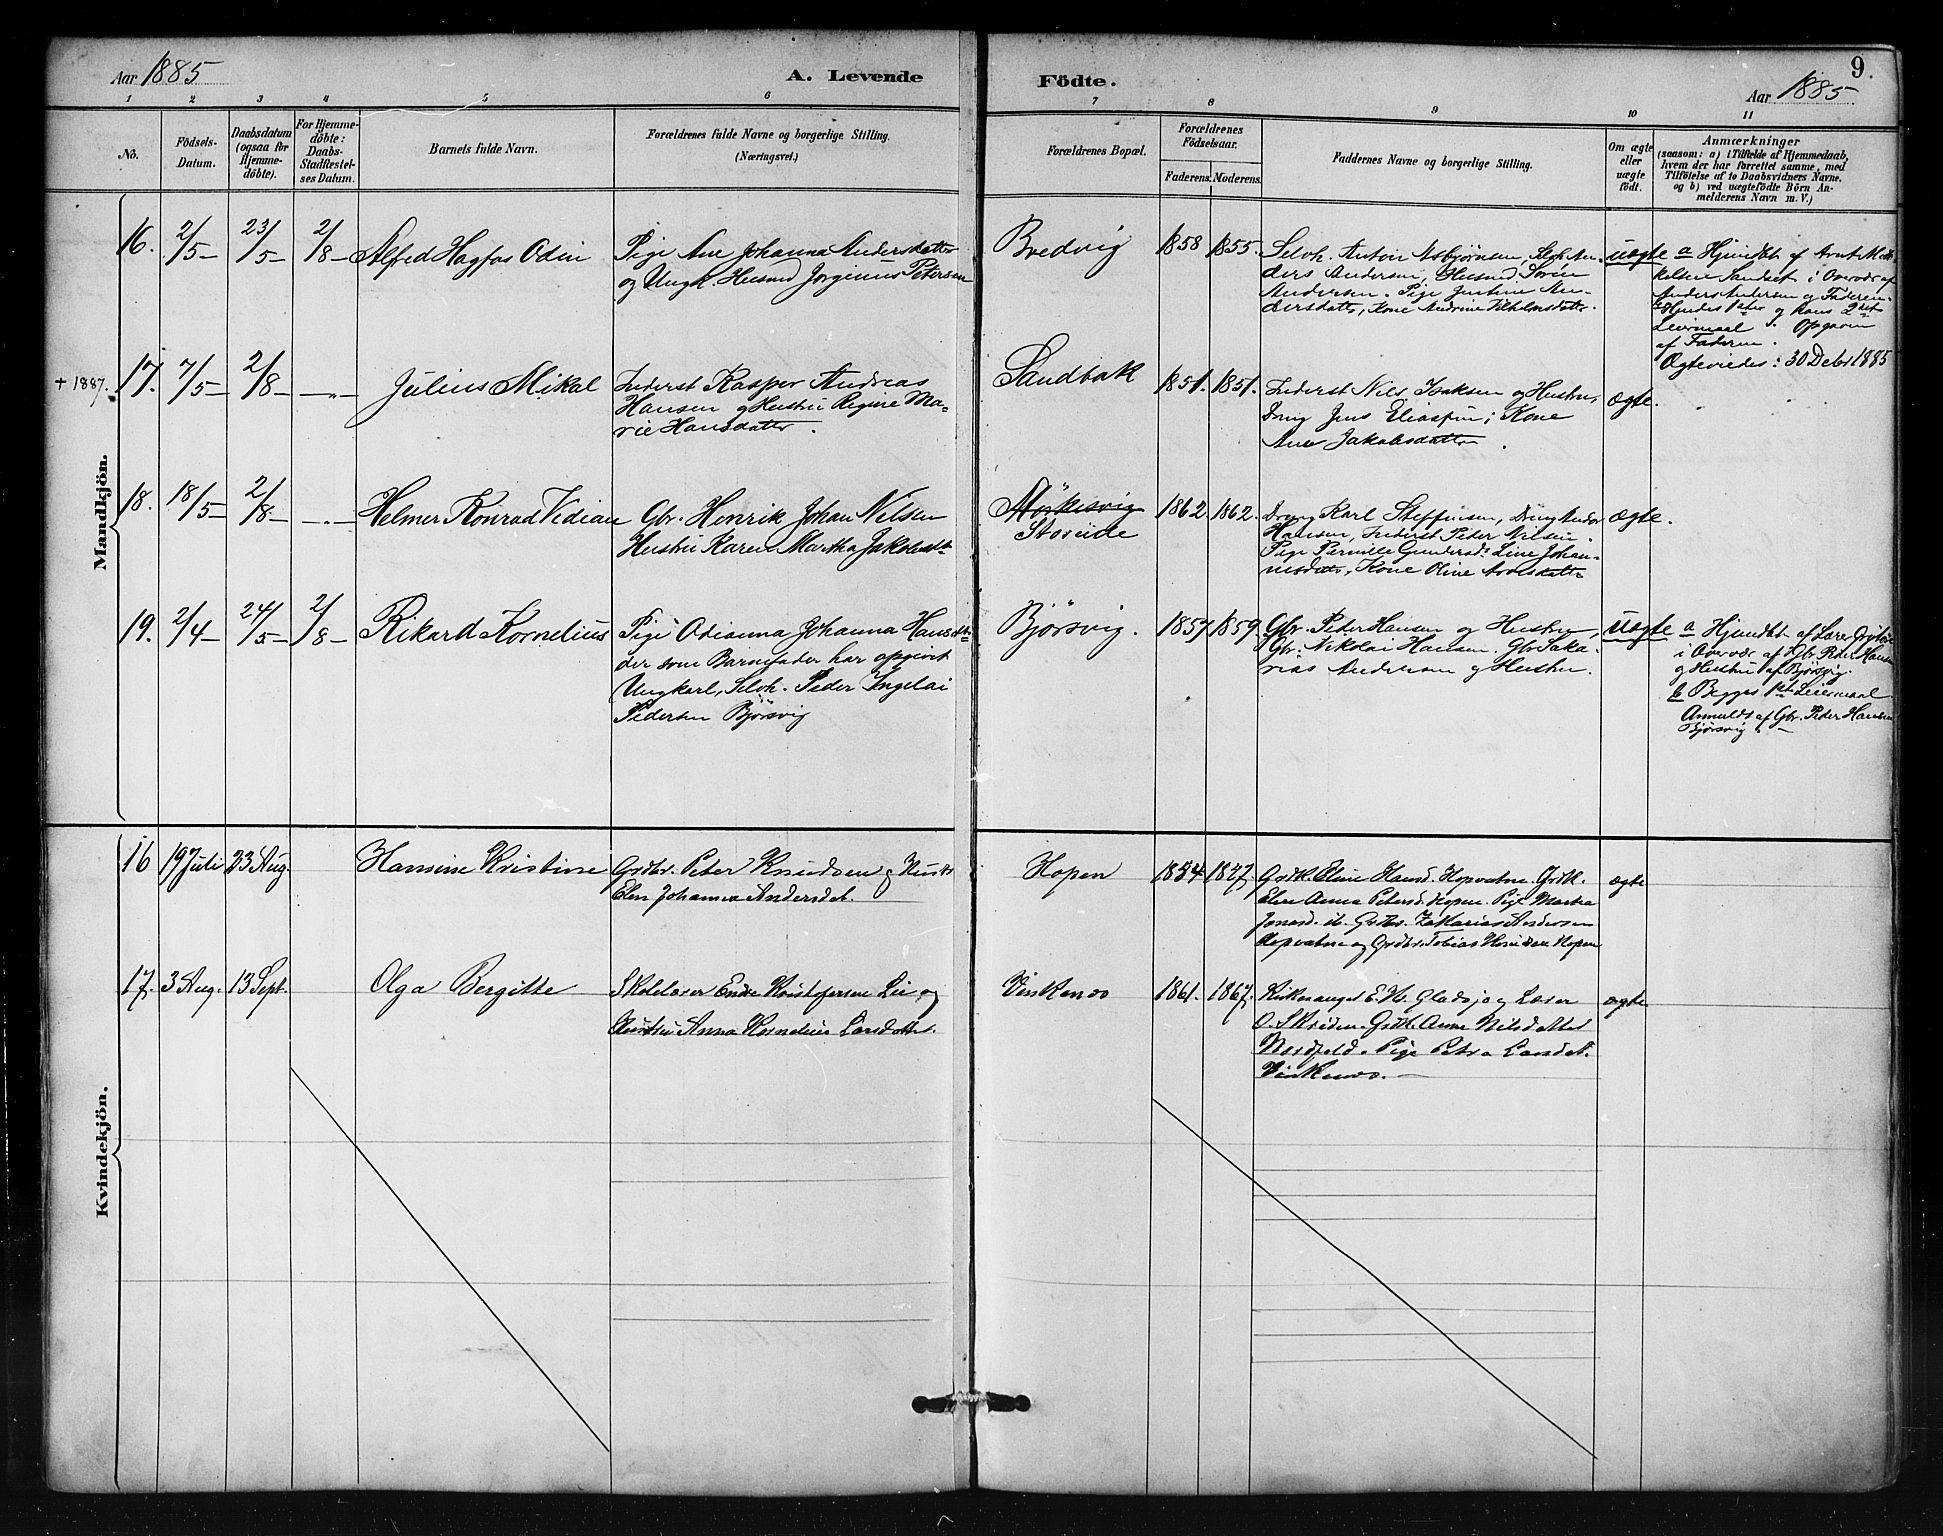 Aar 1885
A. Levende
Födte.
9.
Aar 1885
1 2 3 4 5 6 7 8 9 10 11
No.
Födsels-
Datum.
Daabsdatum
(ogsaa for
Hjemme-
döbte).
For Hjemme-
döbte:
Daabs-
Stadfæstel-
ses Datum.
Barnets fulde Navn.
Forældrenes fulde Navne og borgerlige Stilling.
(Næringsvei.)
Forældrenes Bopæl.
Forældrenes
Födselsaar.
Faderens. Moderens.
Faddernes Navne og borgerlige Stilling.
Om ægte
eller
uægte
födt.
Anmærkninger
(saasom: a) i Tilfælde af Hjemmedaab,
hvem der har forrettet samme, med
Tilföielse af to Daabsvidners Navne.
og b) ved uægtefödte Börn An-
melderens Navn m. V.)
Mandkjön.
16. 2/5- 23/5- 2/8- Alfred Hagfos Odin
Pige Ane Johanna Andersdatter
og Ungk. Husmd Jørginus Petersen
Bredvig
1858 1855.
Selvh. Anton Asbjørnsen, Selvh An-
ders Andersen, Husmd Søren
Andersen. Pige Justine An-
dersdatter, Kone Andrine Vilhelmsdatter.
uægte
a Hjemdøbt af Arnt Mik-
kelsen Sandset i Overvær af
Anders Andersen og Faderen.
b Hendes 1ste og hans 2det
Leiermaal. Opgaven
af Faderen.
Ægteviedes: 30 Debr 1885
+ 1887.
17. 7/5- 2/8- -"- Julius Mikal
Inderst Kasper Andreas
Hansen og Hustru Regine Ma-
rie Hansdatter.
Sandbak
1851. 1851.
Inderst Nils Isaksen og Hustru,
Dreng Jens Eliassen; Kone
Ane Jakobsdatter.
ægte.
18. 18/5- 2/8- -"- Helmer Konrad Vidian
Gbr. Henrik Johan Nilsen
Hustru Karen Martha Jakobsdt
Mørkesvig
Storeide
1862. 1862.
Dreng Karl Steffensen, Dreng Andor
Hansen, Inderst Peder Nilsen.
Pige Pernille Gundersd. Line Johan-
nesdatter, Kone Oline Arntsdatter
ægte.
19. 2/4- 24/5- 2/8- Rikard Kornelius
Pige Odianna Johanna Hansdt.
der som Barnefader har opgivet
Ungkarl, Selvh. Peder Ingelai
Pedersen Bjørsvig
Bjørsvig.
1857 1859.
Gbr. Peter Hansen og Hustru,
Gbr. Nikolai Hansen. Gbr Saka-
rias Andersen og Hustru.
uægte
a Hjemdøbt af Lærer
i Overvær af Gbr. Peder Hansen
og Hustru af Bjørsvig.
b Begges 1ste Leiermaal
Anmeldt af Gbr. Peder Hansen
Bjørsvig.
Kvindekjön.
16 19 Juli 23 Aug. Hansine Kristine
Grdbr. Peter Knudsen og Hustr
Elen Johanna Andersdat.
Hopen
1834 1827.
Grdk. Eline Hansd. Hopvatne. Grdk.
Elen Anna Petersd. Hopen. Pige Marka
Jonasd. ib. Grdbr. Zakarias Andersen
Hopvatne og Grdbr. Tobias Knudsen Hopen
ægte
17. 3 Aug. 13 Sept. Olga Bergitte
Skolelærer Endre Kristofersen Lie og
Hustru Anna Kornelius Larsdatter.
Vinkenæs
1861. 1867.
Kirkesanger E. H. Gladsjø og Lærer
O. Skeiden. Grdk. Anne Nilsdatter
Nordfjeld. Pige Petra Larsdt.
Vinkenæs.
ægte